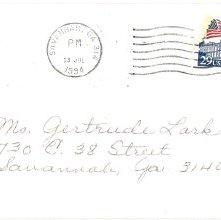 SAVANNAH, GA 314
PM
13 JUL
1994
29 USA
Ms. Gertrude Lark
730 E. 38 Street
Savannah, Ga. 3140